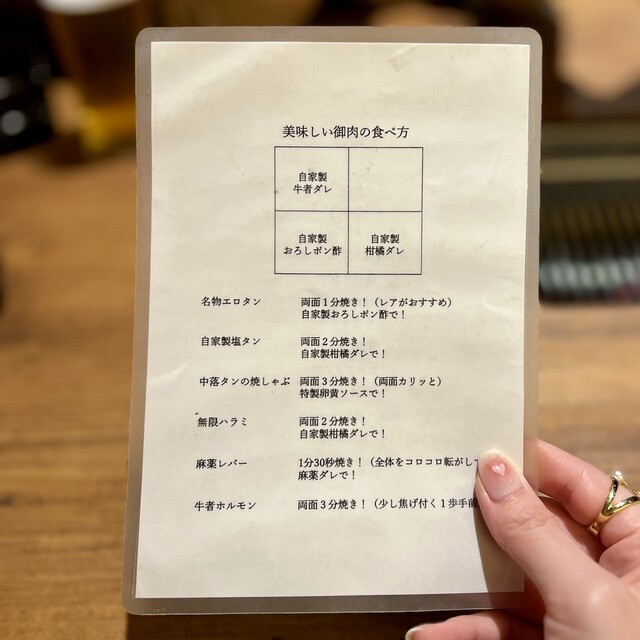 美味しい御肉の食べ方
自家製
牛者ダレ
自家製
おろしポン酢
自家製
柑橘ダレ
名物エロタン 両面1分焼き！（レアがおすすめ）
自家製おろしポン酢で！
自家製塩タン 両面2分焼き！
自家製柑橘ダレで！
中落タンの焼しゃぶ 両面3分焼き！（両面カリッと）
特製卵黄ソースで！
無限ハラミ 両面2分焼き！
自家製柑橘ダレで！
麻薬レバー 1分30秒焼き！（全体をコロコロ転がし
麻薬ダレで！
牛者ホルモン 両面3分焼き！（少し焦げ付く1歩手前